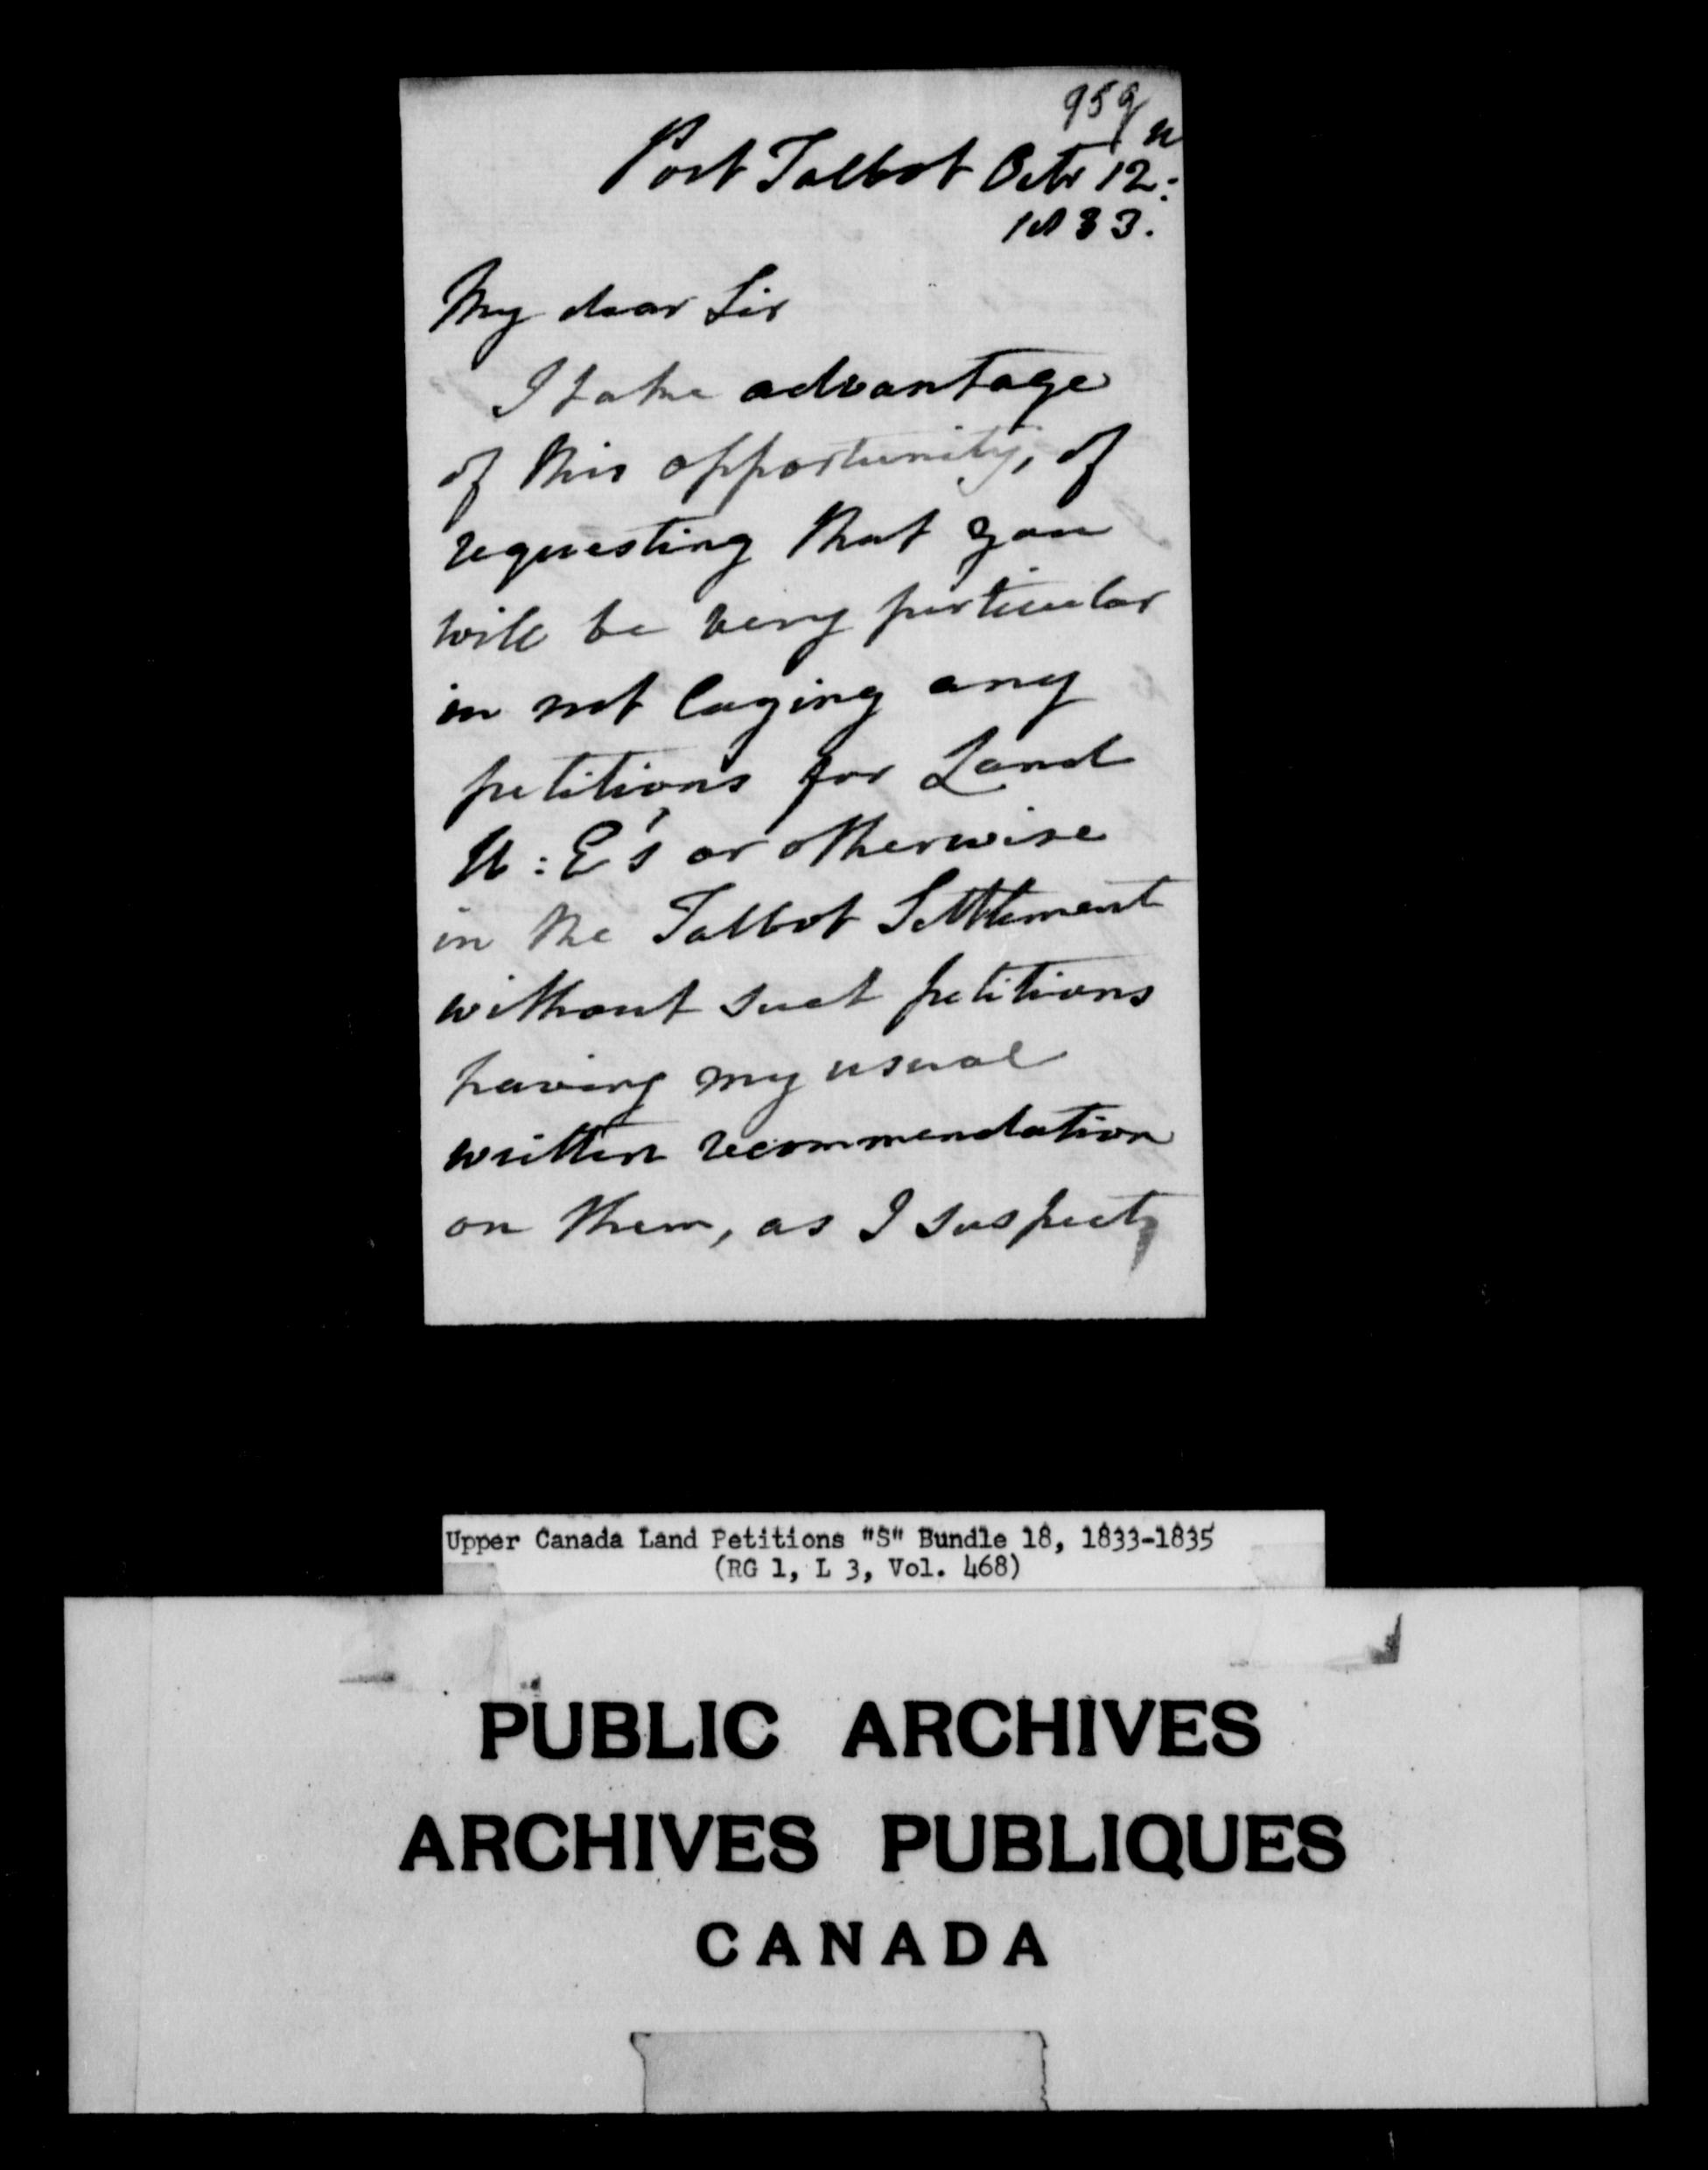 95q
Port Talbot Octr 12:
1833.
My dear Sir
I take advantage
of this opportunity, of
requesting that you
will be very particular
in not laying any
petitions for Land
U: E's or otherwise
in the Talbot Settlement
without such petitions
having my usual
written recommendation
on them, as I suspect
Upper Canada Land Petitions "S" Bundle 18, 1833-1835
(RG 1, L 3, Vol. 468)
PUBLIC ARCHIVES
ARCHIVES PUBLIQUES
CANADA